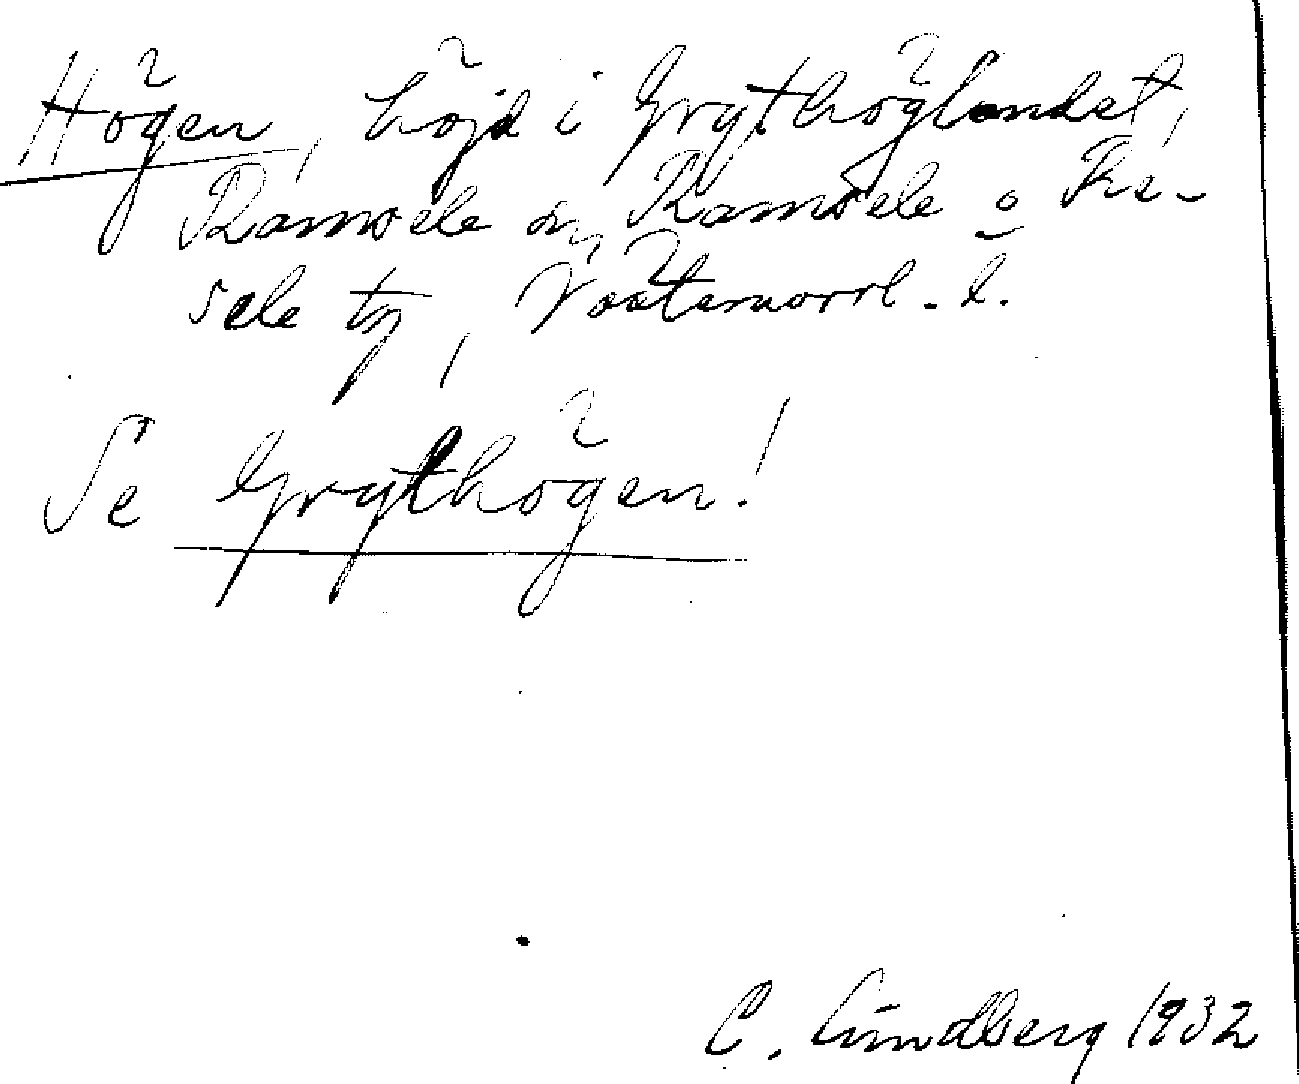 Högen, höjd i Grythöglandet,
Ramsele sn, Ramsele o Re-
sele tg, Västernorrl. l.
Se Grythögen!
C. Lundberg 1932